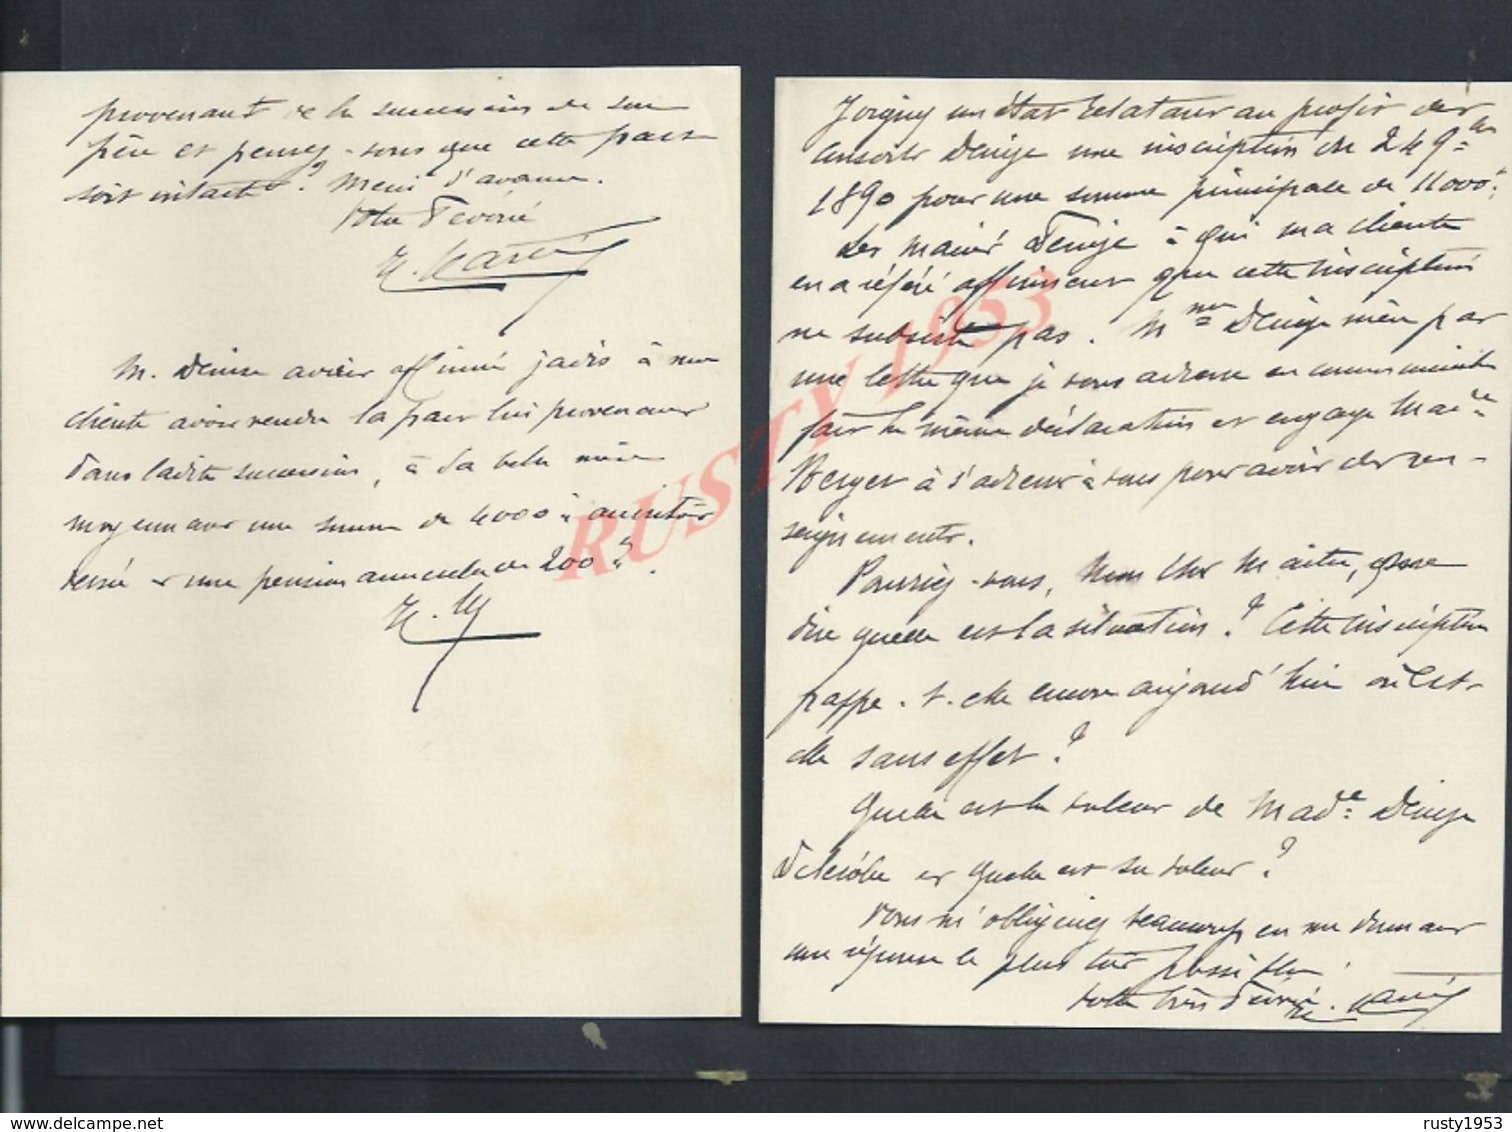 provenant de la succession de son
père et pensez-vous que cette part
soit intacte? Merci d'avance.
Votre dévoué
M. Denise avait affirmé jadis à ma
cliente avoir vendu la part lui provenant
dans ladite succession, à sa belle mère
moyennant une somme de 4000 à aussitôt
versée et une pension annuelle de 200 f.
Joigny un état relatant au profit des
consorts Denise une inscription du 24 9bre
1890 pour une somme principale de 11000 f.
Les mariés Denise à qui ma cliente
en a référé affirment que cette inscription
ne subsiste pas. Mme Denise mère par
une lettre que je vous adresse en communication
fait la même déclaration et engage Made
Berger à s'adresser à vous pour avoir des ren-
seignements.
Pourriez-vous, Mon cher Maître, me
dire quelle est la situation? Cette inscription
frappe-t-elle encore aujourd'hui ou est-
elle sans effet?
Quelle est la valeur de Made Denise
et quelle est sa valeur?
Vous m'obligeriez beaucoup en me donnant
une réponse le plus tôt possible.
Votre très dévoué
RUSTY 1953
delcampe.net
rusty1953